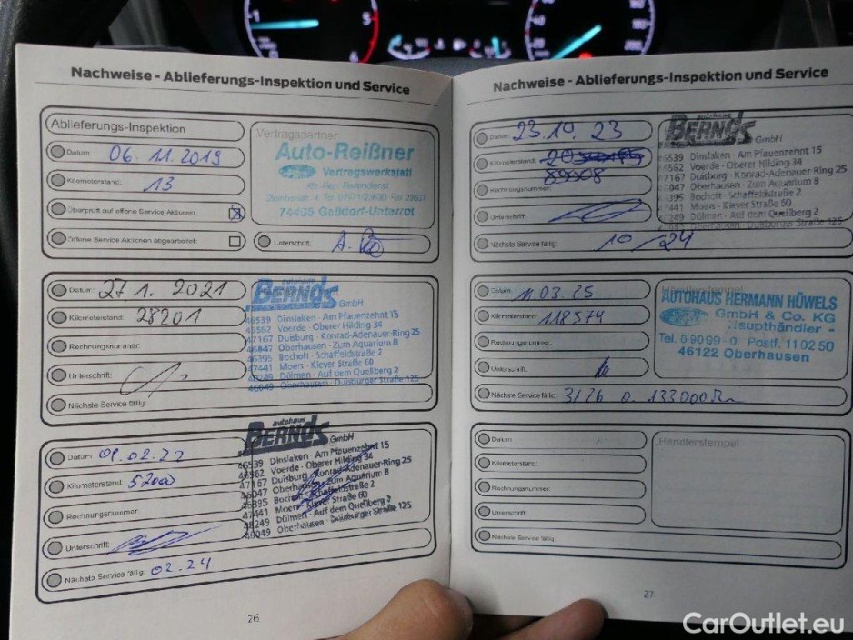 Nachweise - Ablieferungs-Inspektion und Service
Ablieferungs-Inspektion
Datum: 06.11.2019
Kilometerstand: 13
Überprüft auf offene Service Aktionen:
Offene Service Aktionen abgearbeitet:
Vertragspartner
Auto-Reißner
Vertragswerkstatt
74405 Gaildorf-Unterrot
Unterschrift:
Datum: 27 1. 2021
Kilometerstand: 28201
Rechnungsnummer:
Unterschrift:
Nächste Service fällig:
autohaus
BERNDS GmbH
46539 Dinslaken - Am Pfauenzehnt 15
46562 Voerde - Oberer Hilding 34
47167 Duisburg - Konrad-Adenauer-Ring 25
46047 Oberhausen - Zum Aquarium 8
46395 Bocholt - Schaffeldstraße 2
47441 Moers - Klever Straße 60
48249 Dülmen - Auf dem Quellberg 2
46049 Oberhausen - Duisburger Straße 125
Datum: 01.02.22
Kilometerstand: 52000
Rechnungsnummer:
Unterschrift:
Nächste Service fällig: 02.24
autohaus
BERNDS GmbH
46539 Dinslaken - Am Pfauenzehnt 15
46562 Voerde - Oberer Hilding 34
47167 Duisburg - Konrad-Adenauer-Ring 25
46047 Oberhausen - Zum Aquarium 8
46395 Bocholt - Schaffeldstraße 2
47441 Moers - Klever Straße 60
48249 Dülmen - Auf dem Quellberg 2
46049 Oberhausen - Duisburger Straße 125
26
Nachweise - Ablieferungs-Inspektion und Service
Datum: 23.10.23
Kilometerstand:
Rechnungsnummer: 89508
Unterschrift:
Nächste Service fällig: 10/24
BERNDS GmbH
46539 Dinslaken - Am Pfauenzehnt 15
46562 Voerde - Oberer Hilding 34
47167 Duisburg - Konrad-Adenauer-Ring 25
46047 Oberhausen - Zum Aquarium 8
46395 Bocholt - Schaffeldstraße 2
47441 Moers - Klever Straße 60
48249 Dülmen - Auf dem Quellberg 2
46049 Oberhausen - Duisburger Straße 125
Datum: 11.03.25
Kilometerstand: 118574
Rechnungsnummer:
Unterschrift:
Nächste Service fällig: 3/26 o. 133000
Händlerstempel
AUTOHAUS HERMANN HÜWELS
GmbH & Co. KG
Haupthändler -
Tel. 09099-0 Postf. 110250
46122 Oberhausen
Datum:
Kilometerstand:
Rechnungsnummer:
Unterschrift:
Nächste Service fällig:
Händlerstempel
27
CarOutlet.eu